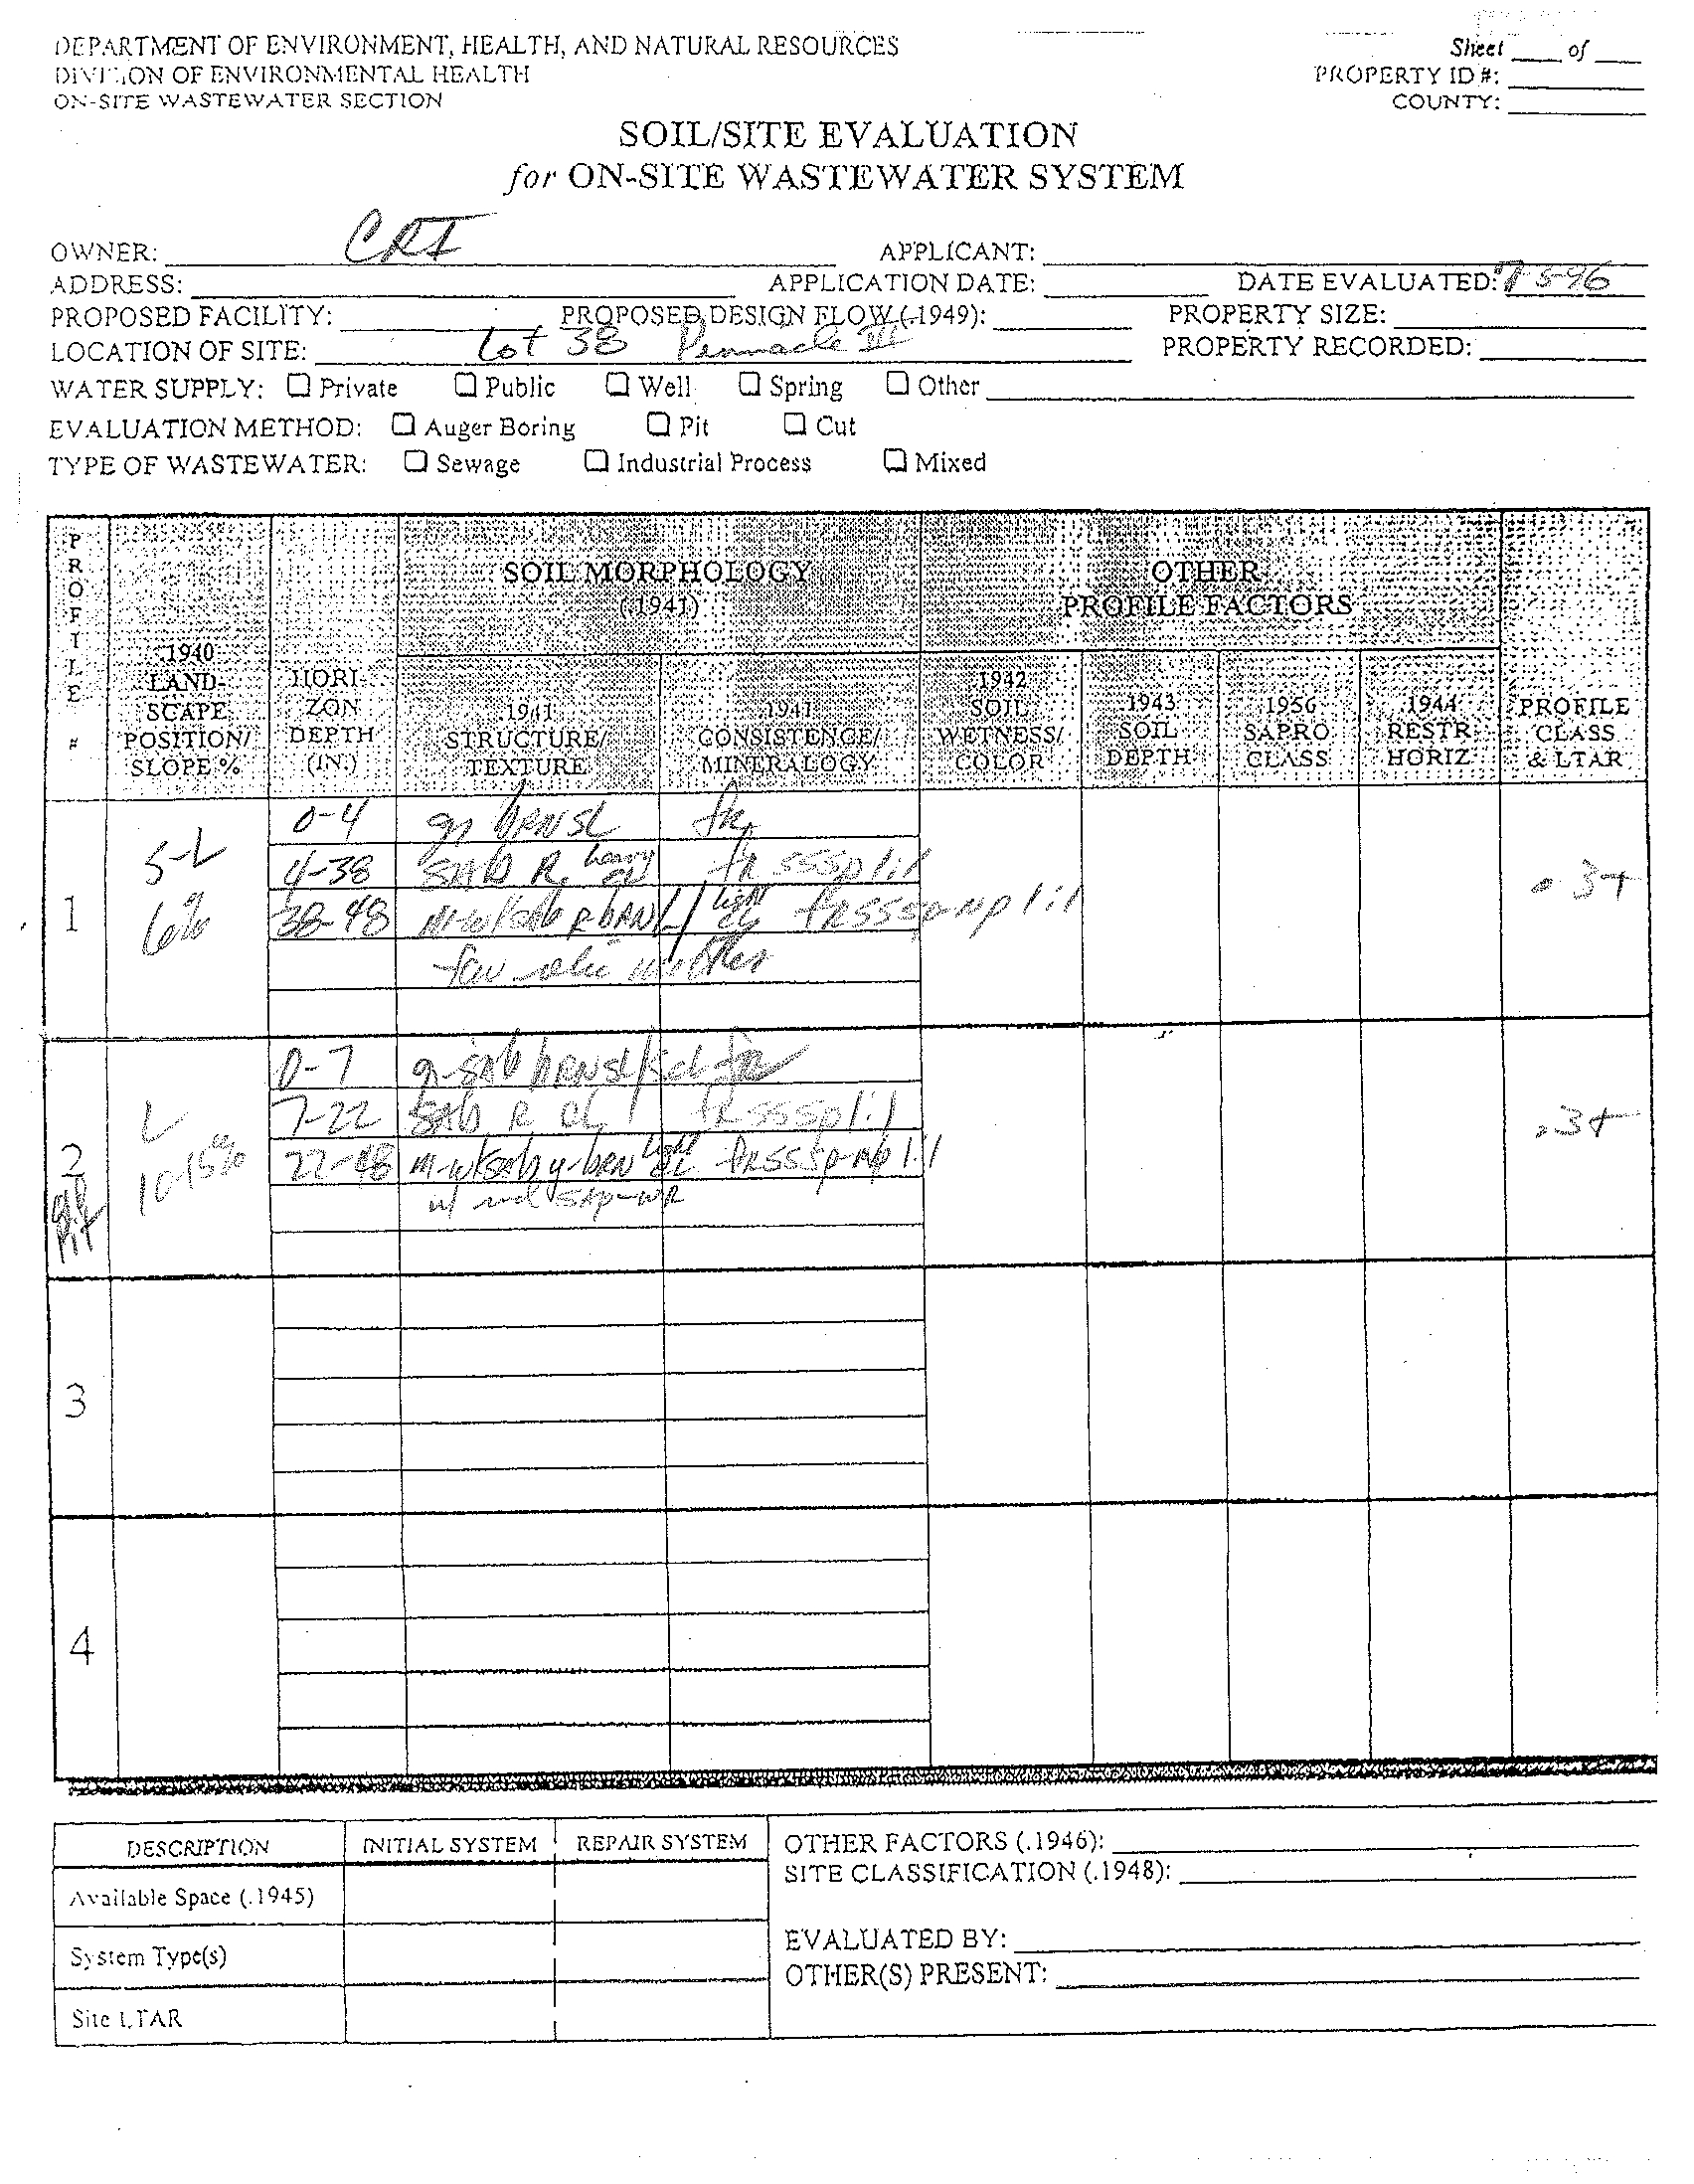 DEPARTMENT OF ENVIRONMENT, HEALTH, AND NATURAL RESOURCES
DIVISION OF ENVIRONMENTAL HEALTH
ON-SITE WASTEWATER SECTION
Sheet ____ of ____
PROPERTY ID #:
COUNTY:
SOIL/SITE EVALUATION
for ON-SITE WASTEWATER SYSTEM
OWNER: CRI APPLICANT:
ADDRESS: APPLICATION DATE: DATE EVALUATED: 5-96
PROPOSED FACILITY: PROPOSED DESIGN FLOW (.1949): PROPERTY SIZE:
LOCATION OF SITE: Lot 38 Pinnacle III PROPERTY RECORDED:
WATER SUPPLY: ☐ Private ☐ Public ☐ Well ☐ Spring ☐ Other
EVALUATION METHOD: ☐ Auger Boring ☐ Pit ☐ Cut
TYPE OF WASTEWATER: ☐ Sewage ☐ Industrial Process ☐ Mixed
PROFILE #
.1940 LAND-SCAPE POSITION/ SLOPE %
HORI-ZON DEPTH (IN.)
SOIL MORPHOLOGY (.1941)
.1941 STRUCTURE/ TEXTURE
.1941 CONSISTENCE/ MINERALOGY
OTHER PROFILE FACTORS
.1942 SOIL WETNESS/ COLOR
.1943 SOIL DEPTH
.1956 SAPRO CLASS
.1944 RESTR HORIZ
PROFILE CLASS & LTAR
1
S-L
6%
0-4 gr BRN SL fr
4-38 SAB R heavy fr sssp 1:1
38-48 m-wksab R-BRN light CL frsssp-np 1:1
few mottles
.3+
2
pit
L
10-15%
0-7 gr-SAB BRN SL/SCL fr
7-22 SAB R CL frsssp 1:1
22-48 m-wksab y-brn light CL frsssp-np 1:1
w/ SAP-WR
.3+
3
4
DESCRIPTION INITIAL SYSTEM REPAIR SYSTEM
Available Space (.1945)
System Type(s)
Site LTAR
OTHER FACTORS (.1946):
SITE CLASSIFICATION (.1948):
EVALUATED BY:
OTHER(S) PRESENT: